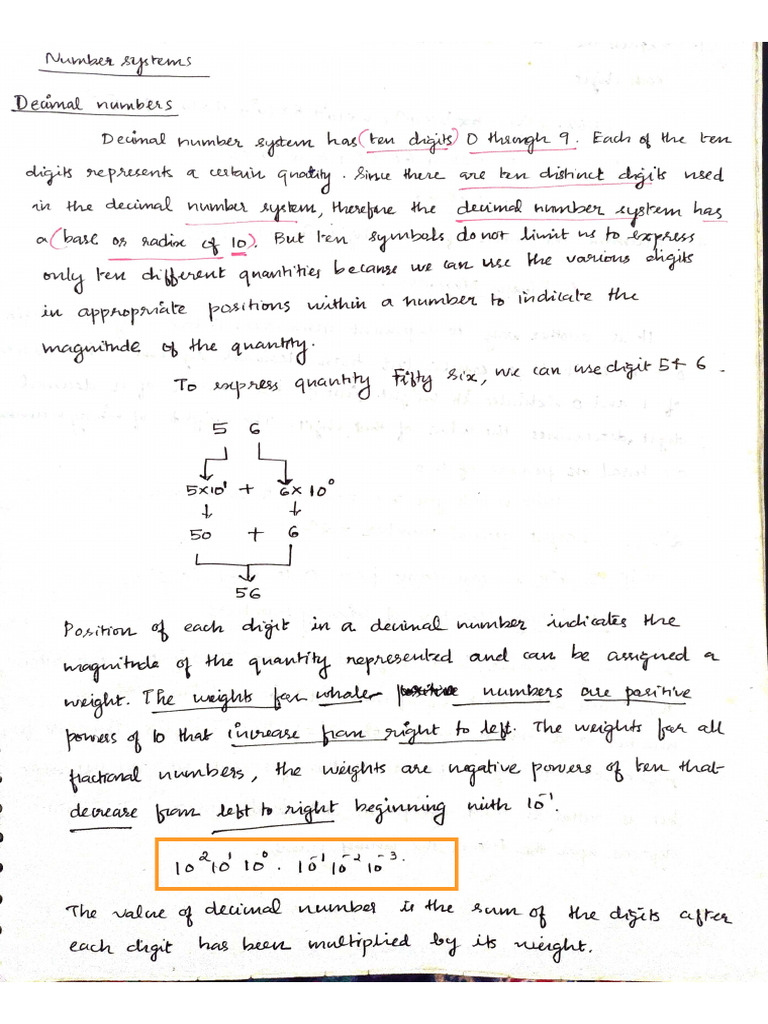 Number systems
Decimal numbers
Decimal number system has (ten digits) 0 through 9. Each of the ten
digits represents a certain quatity. Since there are ten distinct digits used
in the decimal number system, therefore the decimal number system has
a (base or radix of 10). But ten symbols do not limit us to express
only ten different quantities because we can use the various digits
in appropriate positions within a number to indicate the
magnitude of the quantity.
To express quantity Fifty six, we can use digit 5 & 6.
5 6
5×10¹ + 6×10⁰
↓ ↓
50 + 6
56
Position of each digit in a decimal number indicates the
magnitude of the quantity represented and can be assigned a
weight. The weights for whole numbers are positive
powers of 10 that increase from right to left. The weights for all
fractional numbers, the weights are negative powers of ten that
decrease from left to right beginning with 10⁻¹.
10² 10¹ 10⁰ . 10⁻¹ 10⁻² 10⁻³.
The value of decimal number is the sum of the digits after
each digit has been multiplied by its weight.